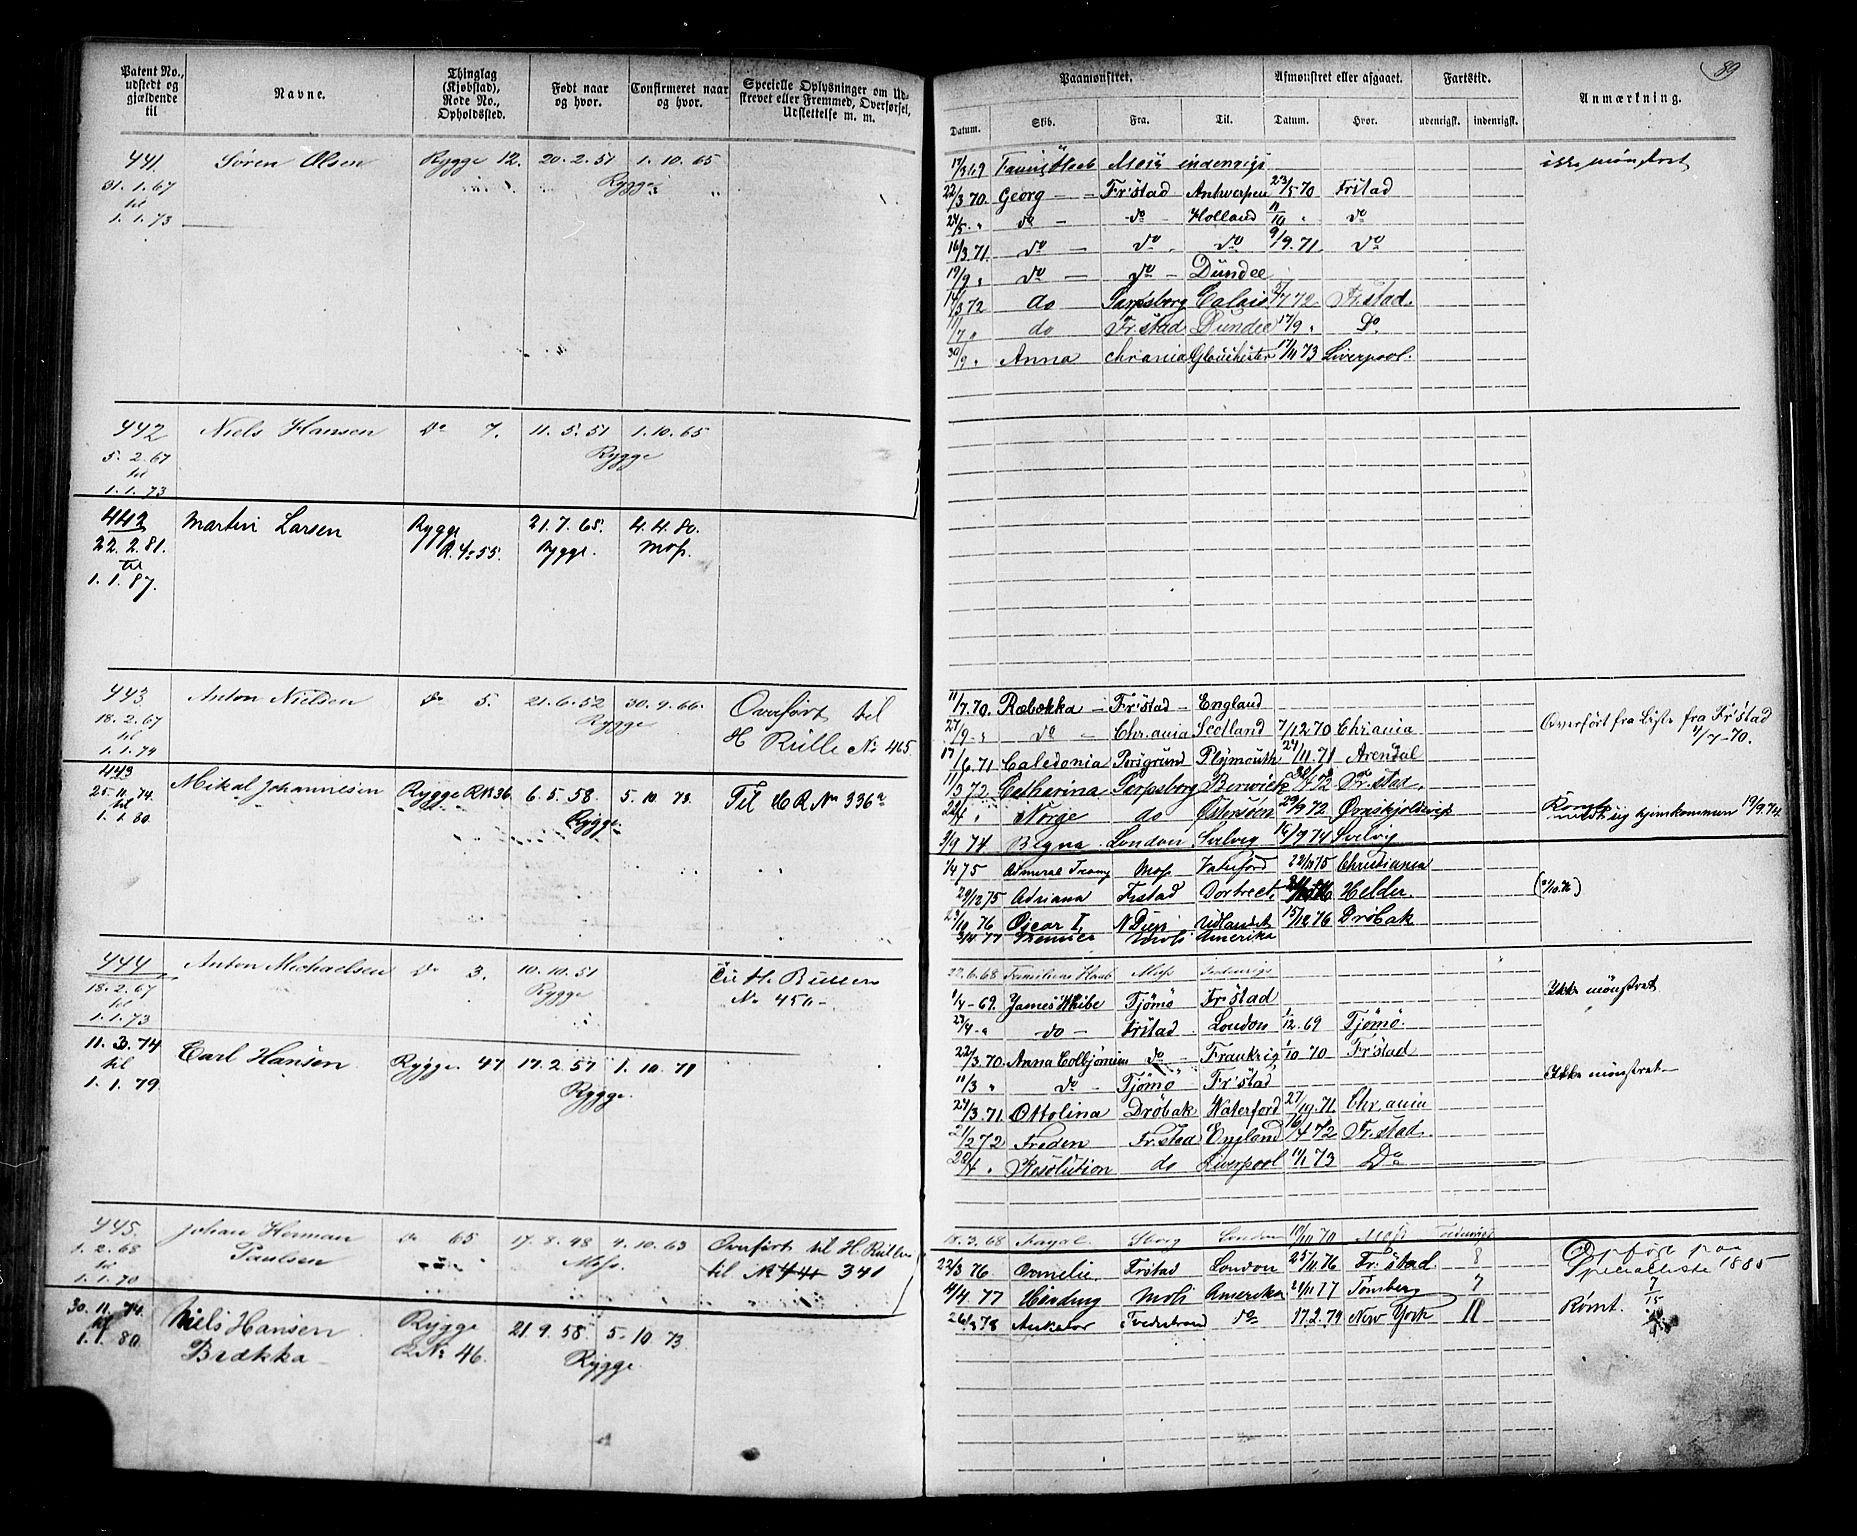 89
Patent No., udstedt og gjældende til
Navne.
Thinglag (Kjøbstad), Rode No., Opholdssted.
Født naar og hvor.
Confirmeret naar og hvor.
Specielle Oplysninger om Udskrevet eller Fremmed, Overførsel, Udslettelse m. m.
Paamønstret.
Afmønstret eller afgaaet.
Fartstid.
Anmærkning.
Datum. Skib. Fra. Til. Datum. Hvor. udenrigsk. indenrigsk.
441 Søren Olsen Rygge 12. 20.2.51 1.10.65
31.1.67 Rygge
til
1.1.73
17/3 69 Moss indenrigs ikke mønstret
22/3 70. Georg Fr:stad Antwerpen 23/5 70 Frstad
24/5 " do do Holland 11/10 " do
16/3 71. do do do 9/9.71. do
19/9 " do do Dundee
14/3 72 do Sarpsborg Calais /7 72 Fr.stad.
11/7 " do Fr.stad Dundee 17/9 " Do
30/9 " Anna Chrania Glouchester 17/11 73 Liverpool.
442 Niels Hansen Do 7. 11.5.51 1.10.65
5.2.67 Rygge
til
1.1.73
442 Martin Larsen Rygge 21.7.65. 4.4.80.
22.2.81. R.No 55. Rygge. Moss.
til
1.1.87.
443 Anton Nielsen Do 5. 21.6.52 30.9.66. Overført til
18.2.67 Rygge H Rulle No 465
til
1.1.74
11/7.70. Rebekka Fr:stad England
27/9 " do Chr.ania Scotland 7/12.70 Chr.ania Overført fra Liste fra Fr:stad 11/7-70.
17/6.71 Caledonia Porsgrund Plymouth 24/11.71 Arendal
11/3 72 Catharina Sarpsborg Berwick Fr.stad.
443 Mikal Johannesen Rygge RN 36 6.5.58. 5.10.73. Til H R No 336a
25.11.74. Rygge
til
1.1.80.
22/4 " Norge do Østersøen 29/9 72
hjemkommen 19/9.74.
3/9 74 Begna London Svelvig 16/9 74 Svelvig
1/4 75 Admeral Tromp Moss Vaterford 22/10 75 Christiania
29/12 75 Adriana Frstad Dortrect Helder
23/10 76 Oscar I Udlandet 15/12 76 Drøbak
3/4 77 Amerika
444 Anton Michaelsen Do 3. 10.10.51 Til H. Rullen
18.2.67 Rygge No 450
til
1.1.73
27.6.68 Familiens Haab Moss Indenrigs Ikke mønstret
1/4-69. James Tjømø Fr:stad
23/4 " do Frstad London 1/12.69 Tjømø.
11.3.74 Carl Hansen Rygge 47 17.2.57 1.10.71
til Rygge.
1.1.79
22/3.70. Anna Colbjørnsen do Frankrig 1/10 70 Fr:stad
11/3 " do Tjømø Fr:stad Ikke mønstret
24/3.71. Ottolina Drøbak Waterford 27/10.71. Chr.ania
21/2 72 Freden Fr.stad England 16/4 72 Fr.stad.
28/4 " Resolution do Liverpool 11/11 73 Do
445. Johan Herman Paulsen Do 65 17.8.48 4.10.63 Overført til H. Rullen
1.2.68 Moss. til No 441 341
til
1.1.70
18.3.68 Fayal. London 10/10 70 Moss
22/3 76 Cornelie. Frstad London 25/11.76 Fr.stad. 8 Opført paa Specialliste 1885
4/4 77 Hending Moss Amerika 21/11 77 Tønsberg 7
26/3 78 Tvedestrand do 17.2.79 New York 11 Rømt.
30.11.74. Niels Hansen Brækka Rygge 21.9.58. 5.10.73.
til R No 46. Rygge.
1.1.80.